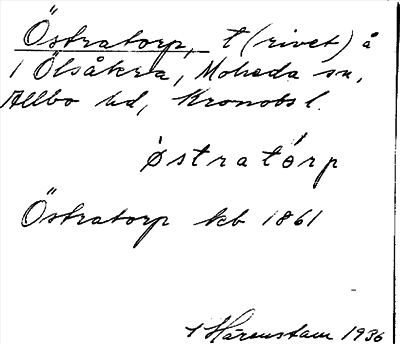 Östratorp, t (rivet) å
1 Ölsåkra, Moheda sn,
Allbo hd, Kronobs l.
östratórp
Östratorp kb 1861
1 Härenstam 1936